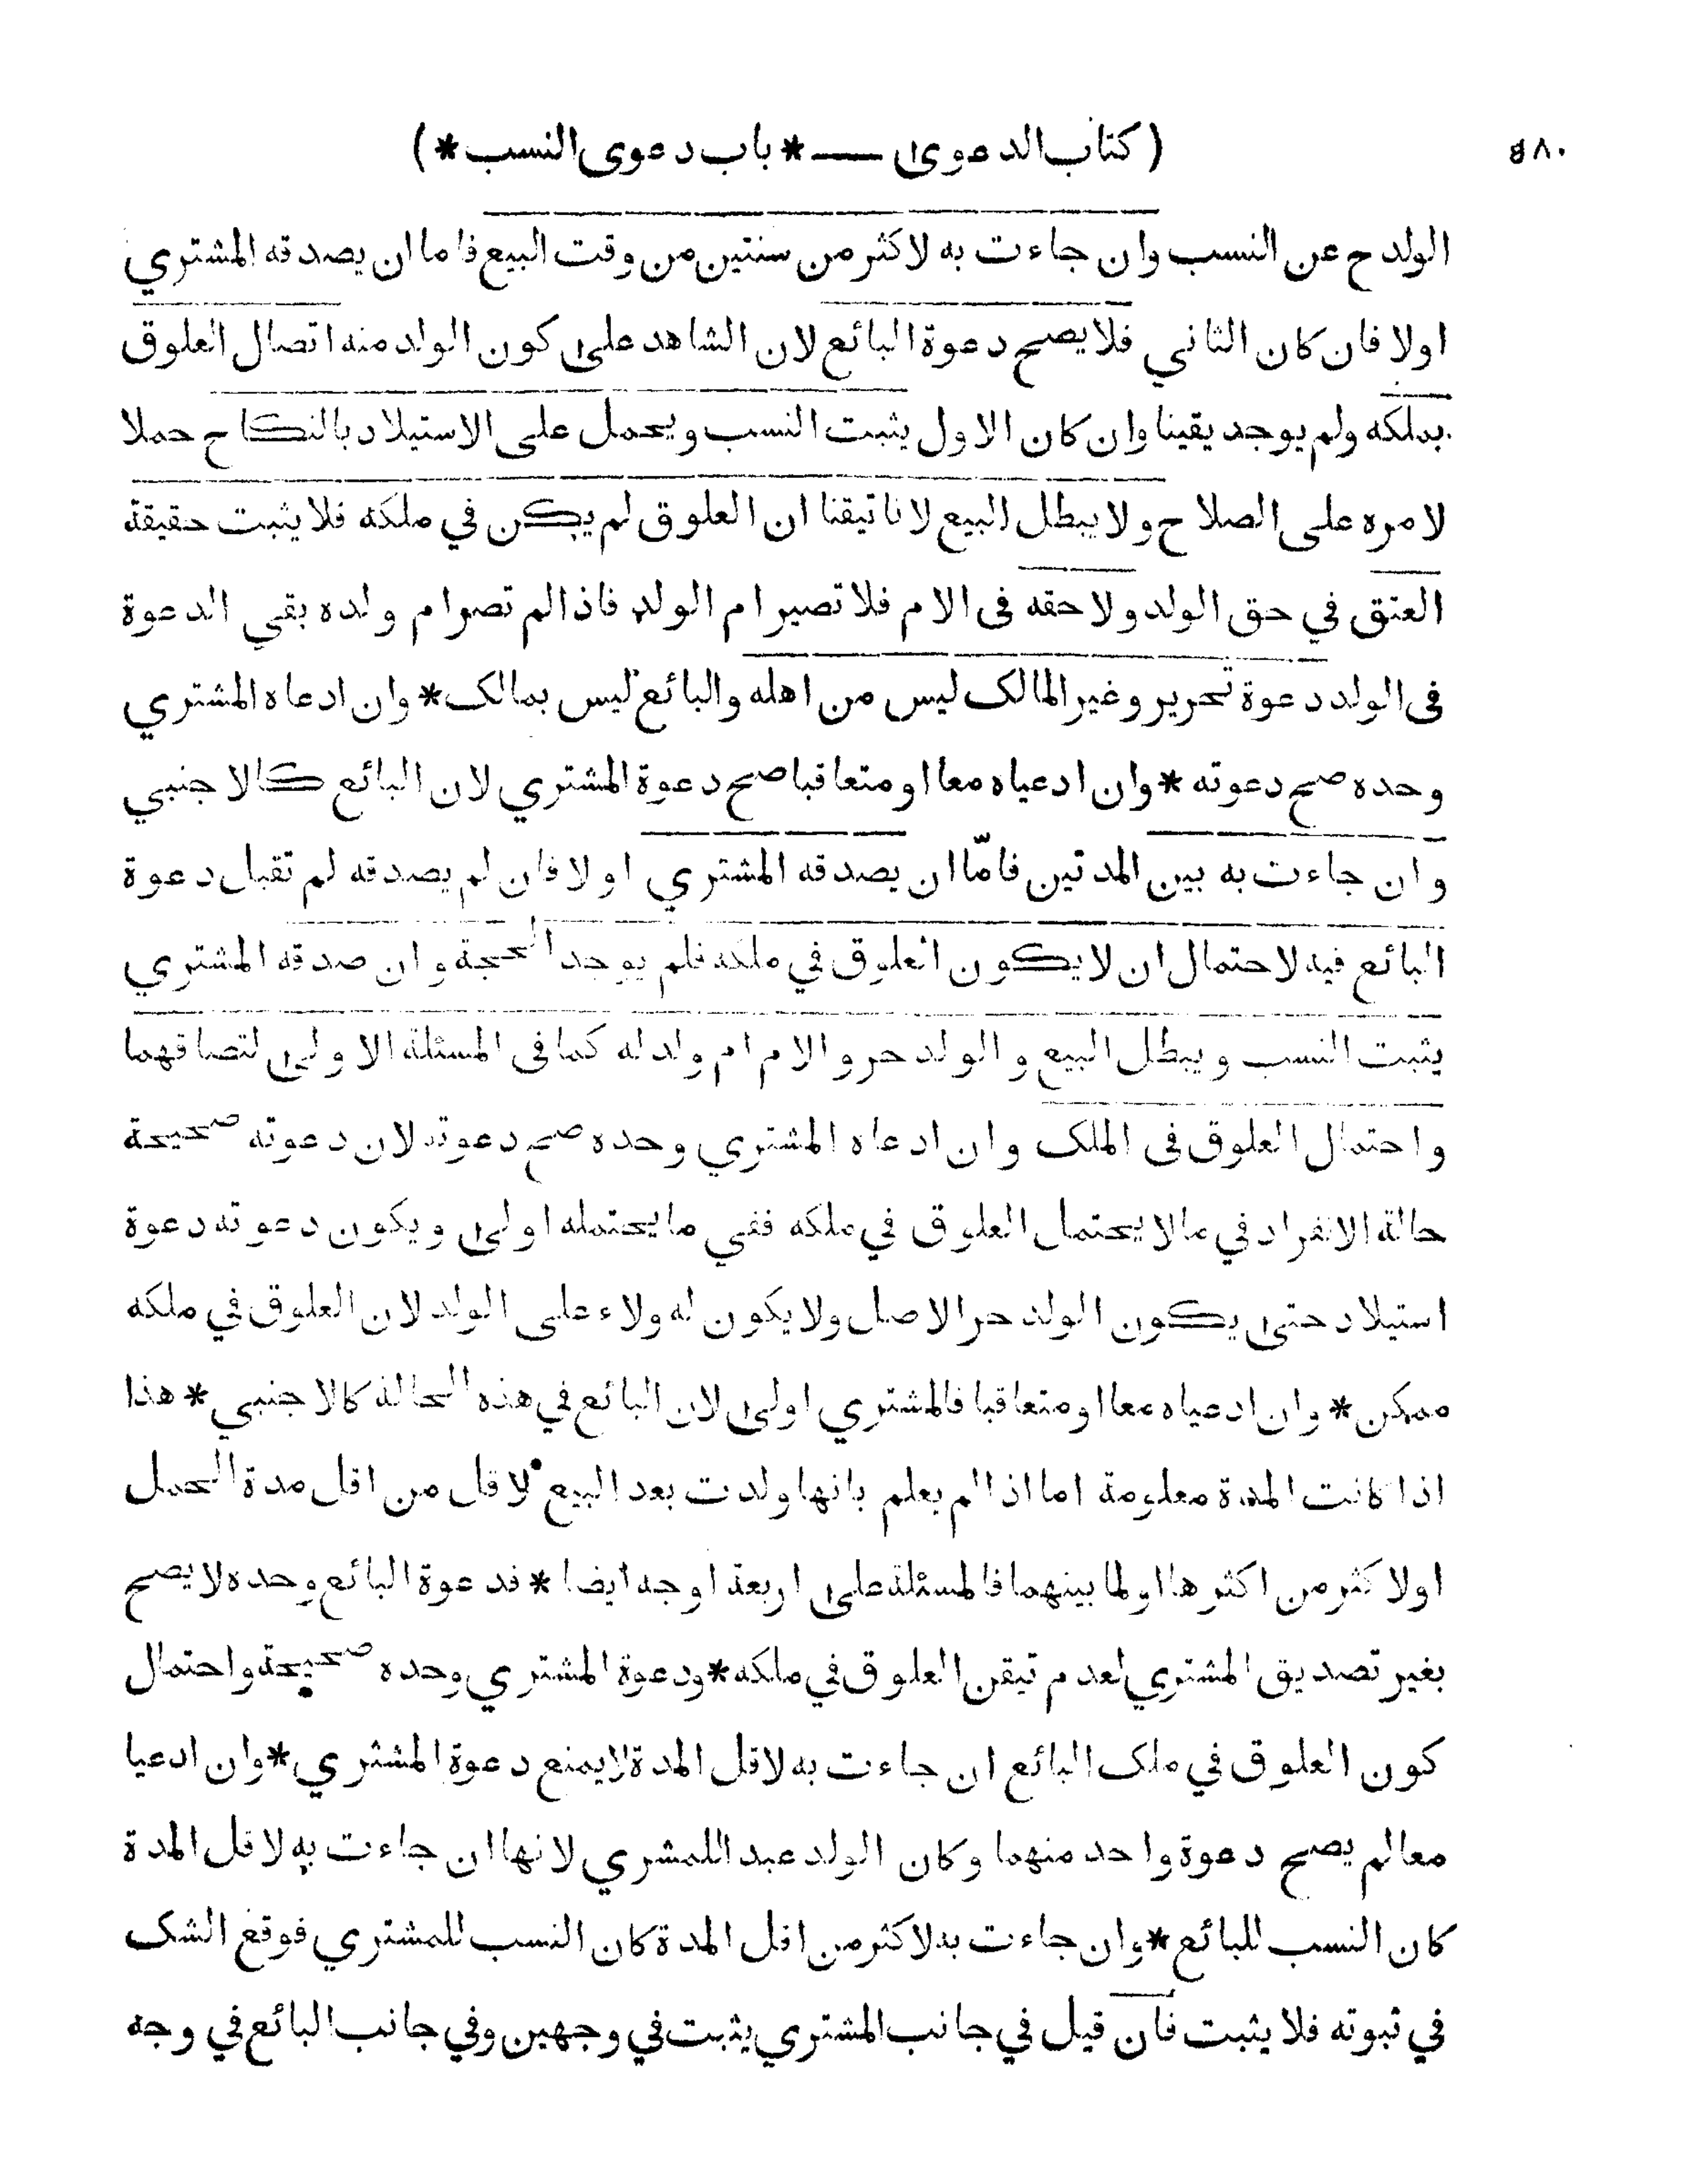 (كتاب الدعوى — * باب دعوى النسب *)
الولد ح عن النسب وان جاءت به لاكثر من سنتين من وقت البيع فاما ان يصدقه المشتري
اولا فان كان الثاني فلا يصح دعوة البائع لان الشاهد على كون الولد منه اتصال العلوق
بملكه ولم يوجد يقينا وان كان الاول يثبت النسب ويحمل على الاستيلاد بالنكاح حملا
لامره على الصلاح ولا يبطل البيع لانا تيقنا ان العلوق لم يكن في ملكه فلا يثبت حقيقة
العتق في حق الولد ولا حقه فى الام فلا تصير ام الولد فاذا لم تصر ام ولده بقي الدعوة
فى الولد دعوة تحرير وغير المالك ليس من اهله والبائع ليس بمالك * وان ادعاه المشتري
وحده صح دعوته * وان ادعياه معا او متعاقبا صح دعوة المشتري لان البائع كالاجنبي
وان جاءت به بين المدتين فامّا ان يصدقه المشتري اولا فان لم يصدقه لم تقبل دعوة
البائع فيه لاحتمال ان لا يكون العلوق في ملكه فلم يوجد الحجة وان صدقه المشتري
يثبت النسب ويبطل البيع والولد حر والام ام ولد له كما فى المسئلة الاولى لتصادقهما
واحتمال العلوق فى الملك وان ادعاه المشتري وحده صح دعوته لان دعوته صحيحة
حالة الانفراد في ما لا يحتمل العلوق في ملكه ففي ما يحتمله اولى ويكون دعوته دعوة
استيلاد حتى يكون الولد حر الاصل ولا يكون له ولاء على الولد لان العلوق في ملكه
ممكن * وان ادعياه معا او متعاقبا فالمشتري اولى لان البائع في هذه الحالة كالاجنبي * هذا
اذا كانت المدة معلومة اما اذا لم يعلم بانها ولدت بعد البيع لاقل من اقل مدة الحمل
اولا كثر من اكثرها او لما بينهما فالمسئلة على اربعة اوجه ايضا * فدعوة البائع وحده لا يصح
بغير تصديق المشتري لعدم تيقن العلوق في ملكه * ودعوة المشتري وحده صحيحة واحتمال
كون العلوق في ملك البائع ان جاءت به لاقل المدة لا يمنع دعوة المشتري * وان ادعيا
معا لم يصح دعوة واحد منهما وكان الولد عبدا للمشري لانها ان جاءت به لاقل المدة
كان النسب للبائع * وان جاءت به لاكثر من اقل المدة كان النسب للمشتري فوقع الشك
في ثبوته فلا يثبت فان قيل في جانب المشتري يثبت في وجهين وفي جانب البائع في وجه